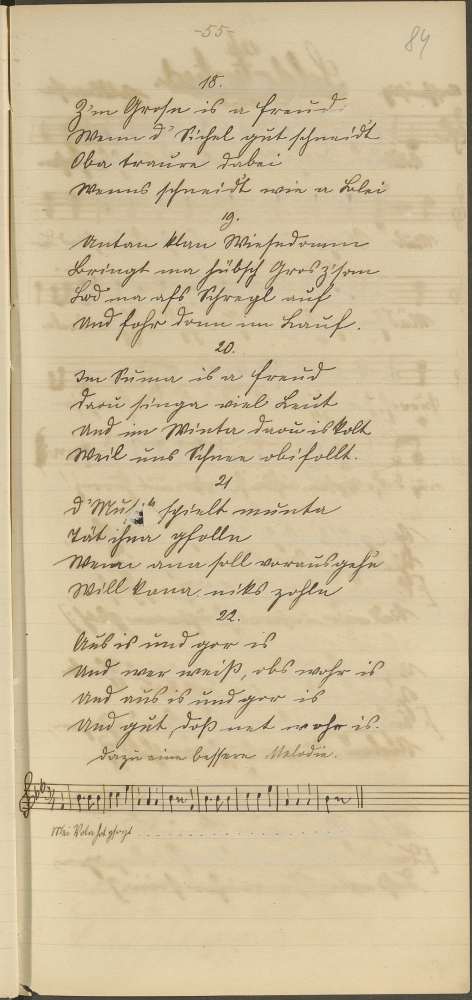 -55-
84
18.
Z'm Grosn is a Freud
Wenn d' Sichel gut schneidt
Oba traure dabei
Wenns schneidt wie a Blei
19.
Untan Wiesndomm
Bringt ma hübsch Gros z'som
Lod ma afs Schregl auf
Und fohr donn im Lauf.
20.
Im Suma is a Freud
Draù singa viel Leut
Und im Winta draù is kolt
Weil uns Schnee obifollt.
21
D'Musi spielt munta
Tät ihna gfolln
Wenn ana soll vorausgehn
Will kana niks zohln
22.
Aus is und gor is
Und wer weiß, obs wohr is
Und aus is und gor is
Und gut, doß net wohr is.
Dazu eine bessere Melodie.
Mei Voda hot gsogt